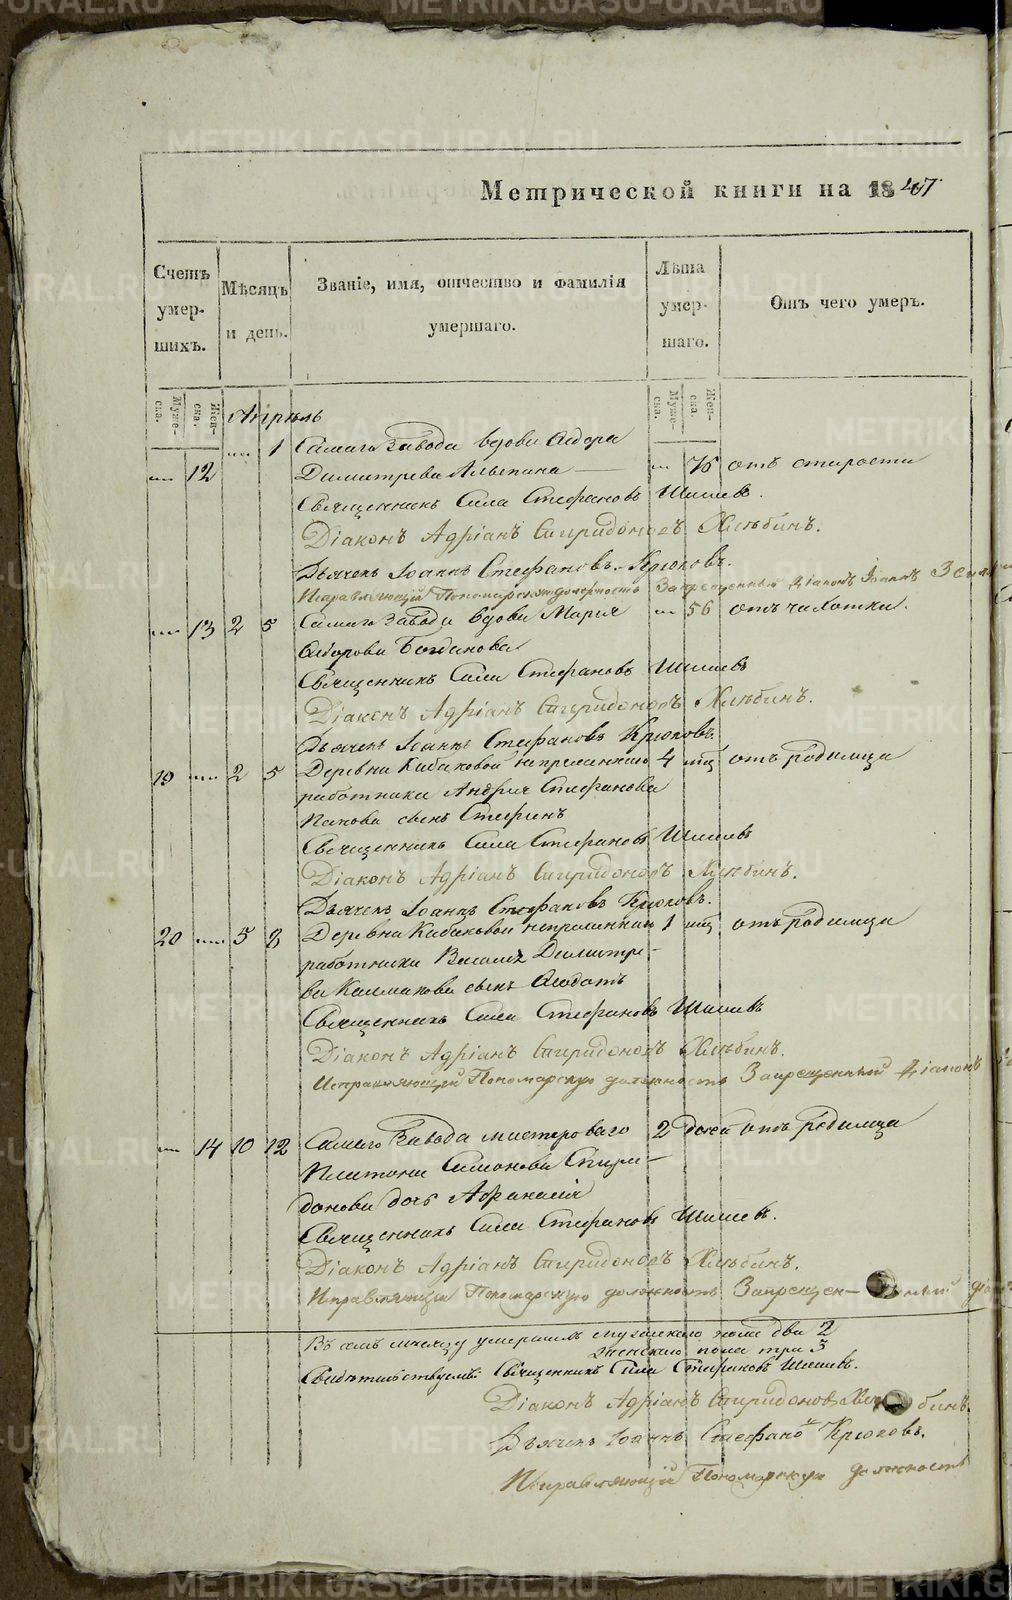 Метрической книги на 1847
Счетъ умер-шихъ.
Мѣсяцъ и день.
Званіе, имя, отчество и фамилія умершаго.
Лѣта умер-шаго.
Отъ чего умеръ.
Муже-ска. Жен-ска. Муже-ска. Жен-ска.
Апрѣль
1 Самаго Завода вдова Ѳедора
12 Димитрева 76 отъ старости
Священникъ Сила Стефановъ Шишевъ.
Діаконъ Адріанъ Спиридоновъ Хлѣбинъ.
Дьячекъ Іоаннъ Стефановъ Крюковъ.
Исправляющій Пономарскую должность Запрещенный Діаконъ Іоаннъ
13 2 5 Самаго Завода вдова Марья 56 отъ чахотки.
Ѳедорова Богданова
Священникъ Сила Стефановъ Шишевъ
Діаконъ Адріанъ Спиридоновъ Хлѣбинъ.
Дьячекъ Іоаннъ Стефановъ Крюковъ.
19 2 5 Деревни Кабаковой непременнаго 4 мц отъ родимца
работника Андрея Стефанова
Попова сынъ Стефанъ
Священникъ Сила Стефановъ Шишевъ
Діаконъ Адріанъ Спиридоновъ Хлѣбинъ.
Дьячекъ Іоаннъ Стефановъ Крюковъ.
20 5 8 Деревни Кабаковой непременнаго 1 мц отъ родимца
работника Василья Димитре-
ва Калмакова сынъ Ѳедотъ
Священникъ Сила Стефановъ Шишевъ
Діаконъ Адріанъ Спиридоновъ Хлѣбинъ.
Исправляющій Пономарскую должность Запрещенный Діаконъ
14 10 12 Самаго Завода мастероваго 2 отъ родимца
Платона Симонова Спири-
донова дочь Афанасія
Священникъ Сила Стефановъ Шишевъ.
Діаконъ Адріанъ Спиридоновъ Хлѣбинъ.
Исправляющій Пономарскую должность Запрещен-ный
Въ семъ месяцу умершихъ мужескаго пола два 2
женскаго пола три 3
Свидѣтельствуемъ: Священникъ Сила Стефановъ Шишевъ.
Діаконъ Адріанъ Спиридоновъ Хлѣбинъ.
Дьячекъ Іоаннъ Стефановъ Крюковъ.
Исправляющій Пономарскую должность
METRIKI.GASO-URAL.RU